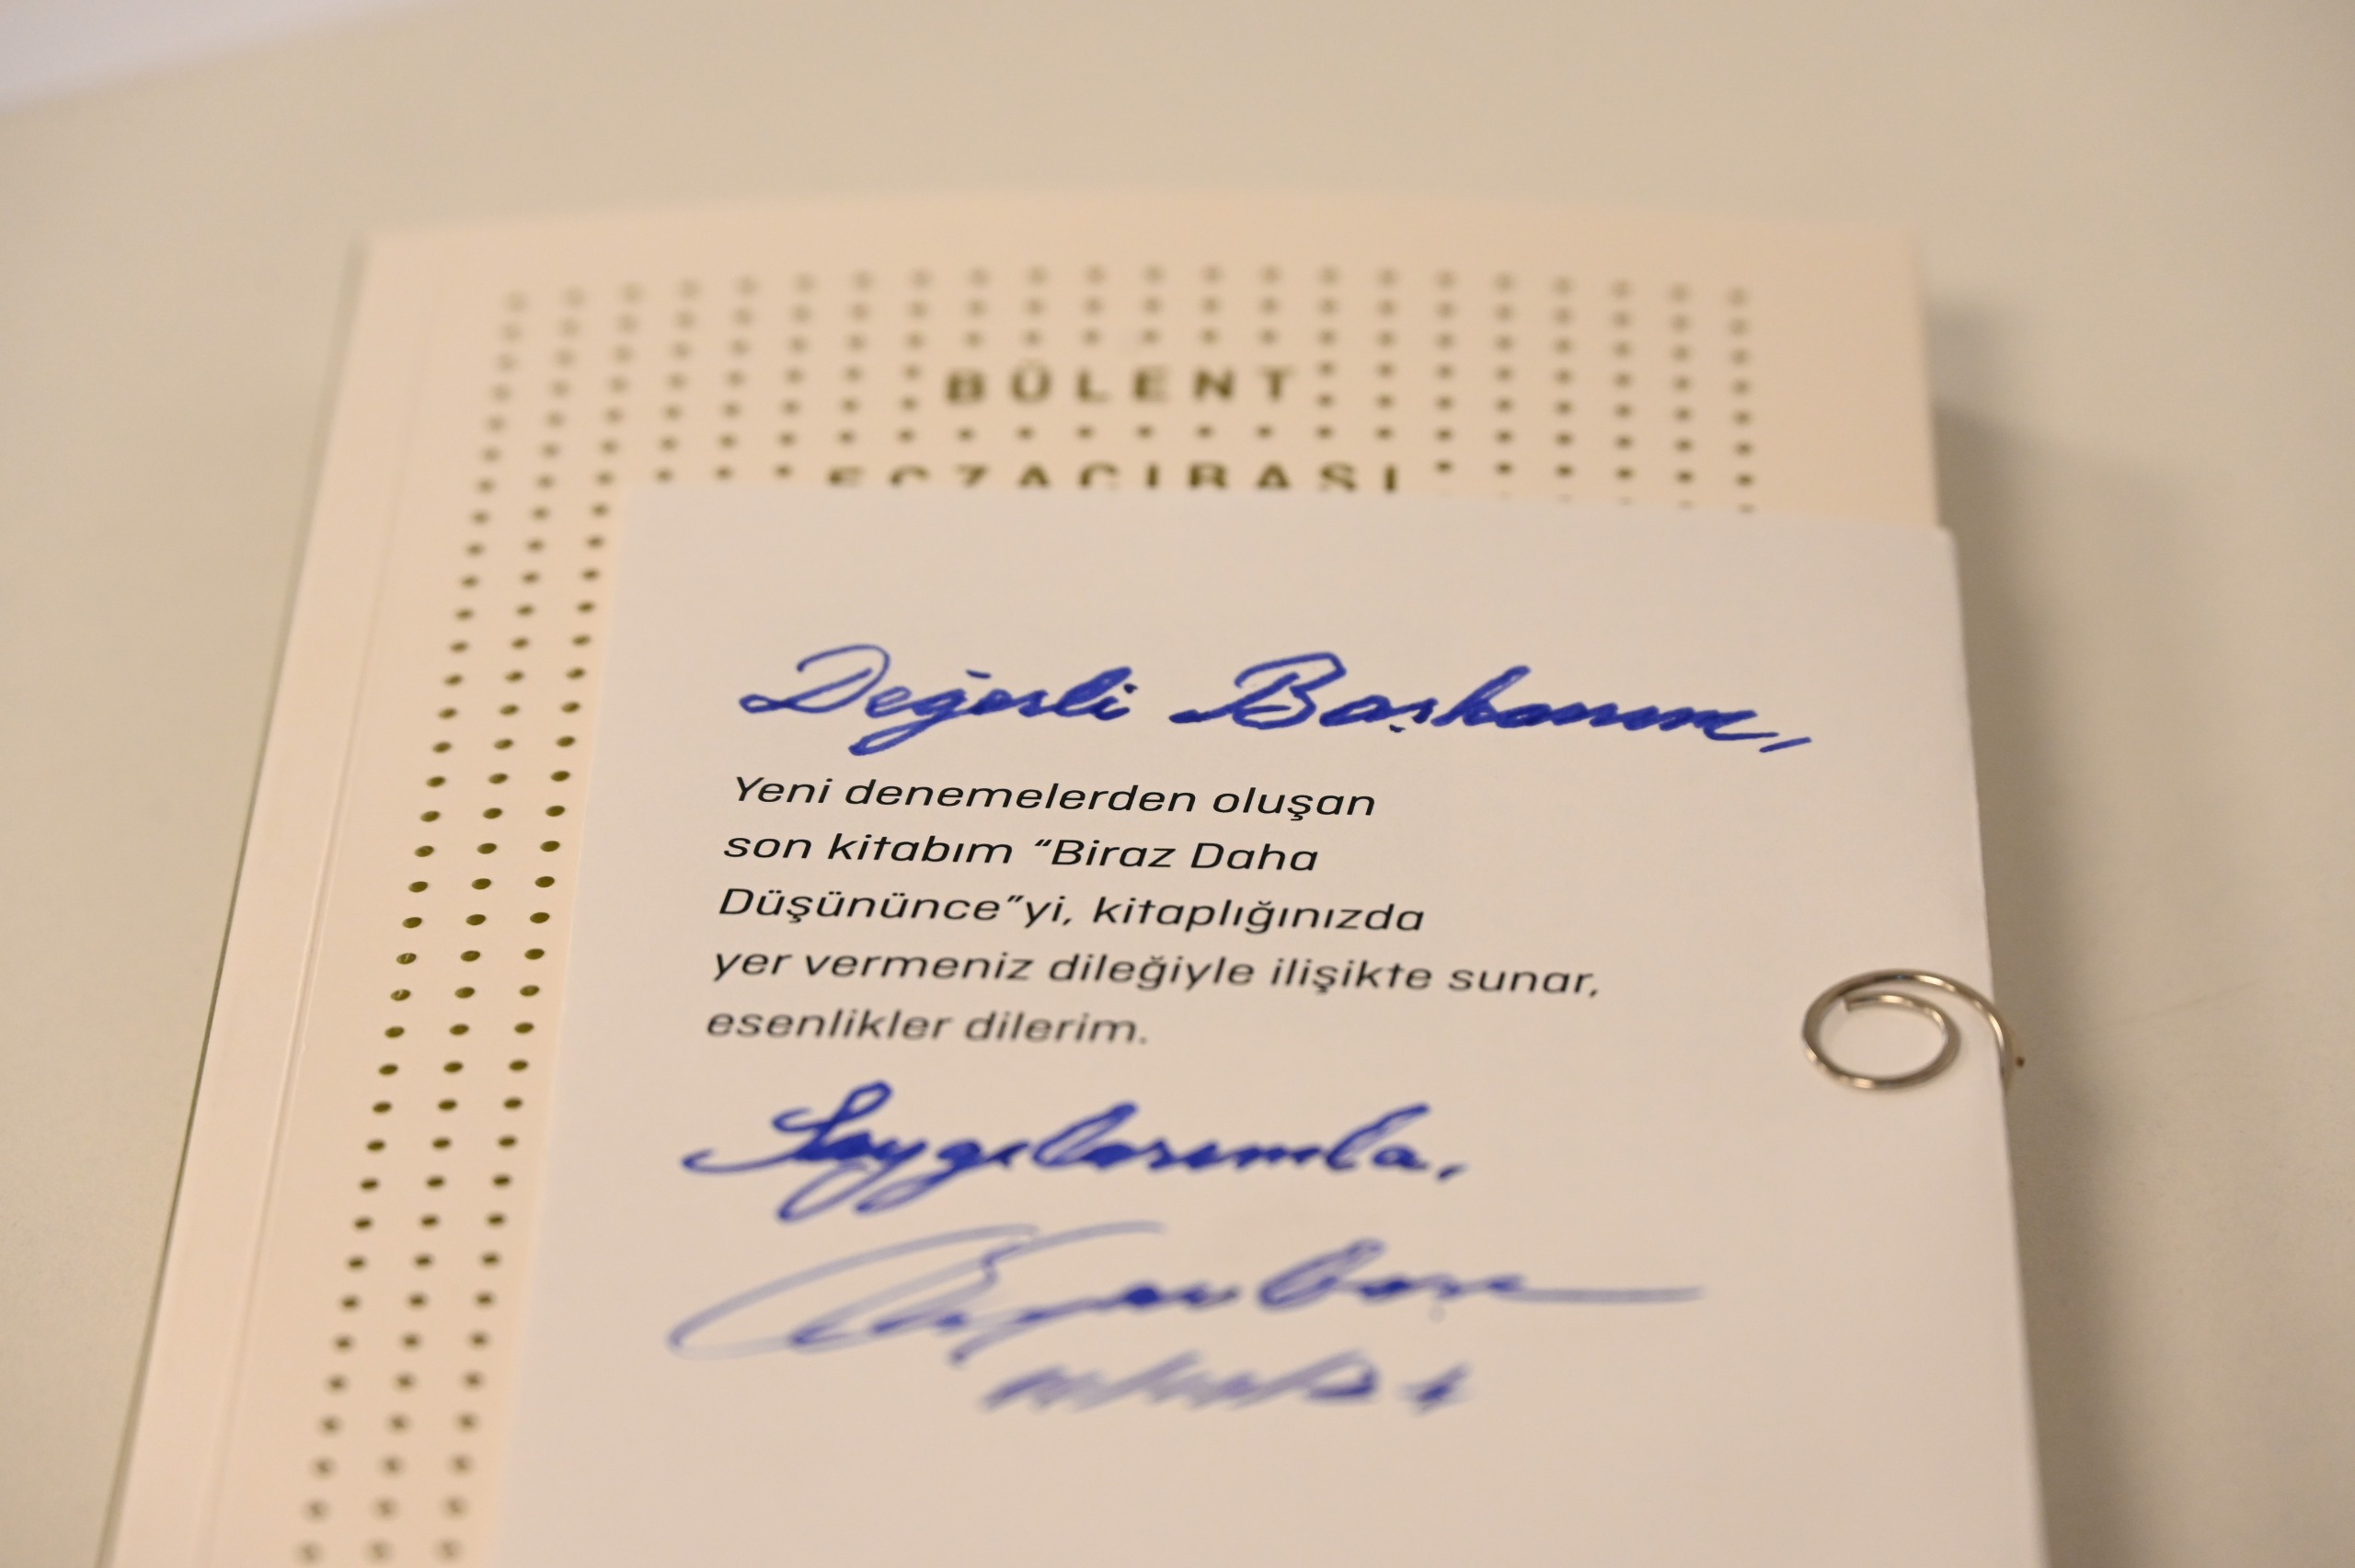 BÜLENT
ECZACIBAŞI
Değerli Başkanım,
Yeni denemelerden oluşan
son kitabım “Biraz Daha
Düşününce”yi, kitaplığınızda
yer vermeniz dileğiyle ilişikte sunar,
esenlikler dilerim.
Saygılarımla,